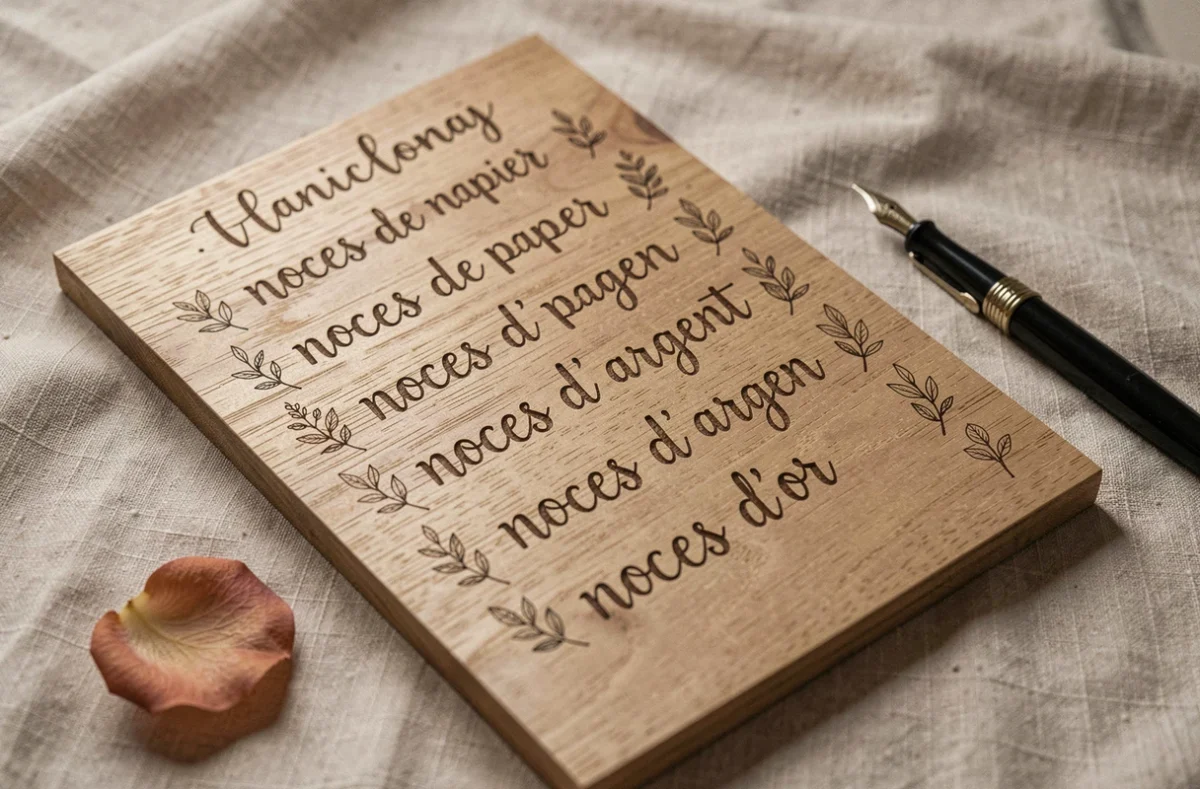 noces de napier
noces de paper
noces d' pagen
noces d' argent
noces d' argen
noces d'or